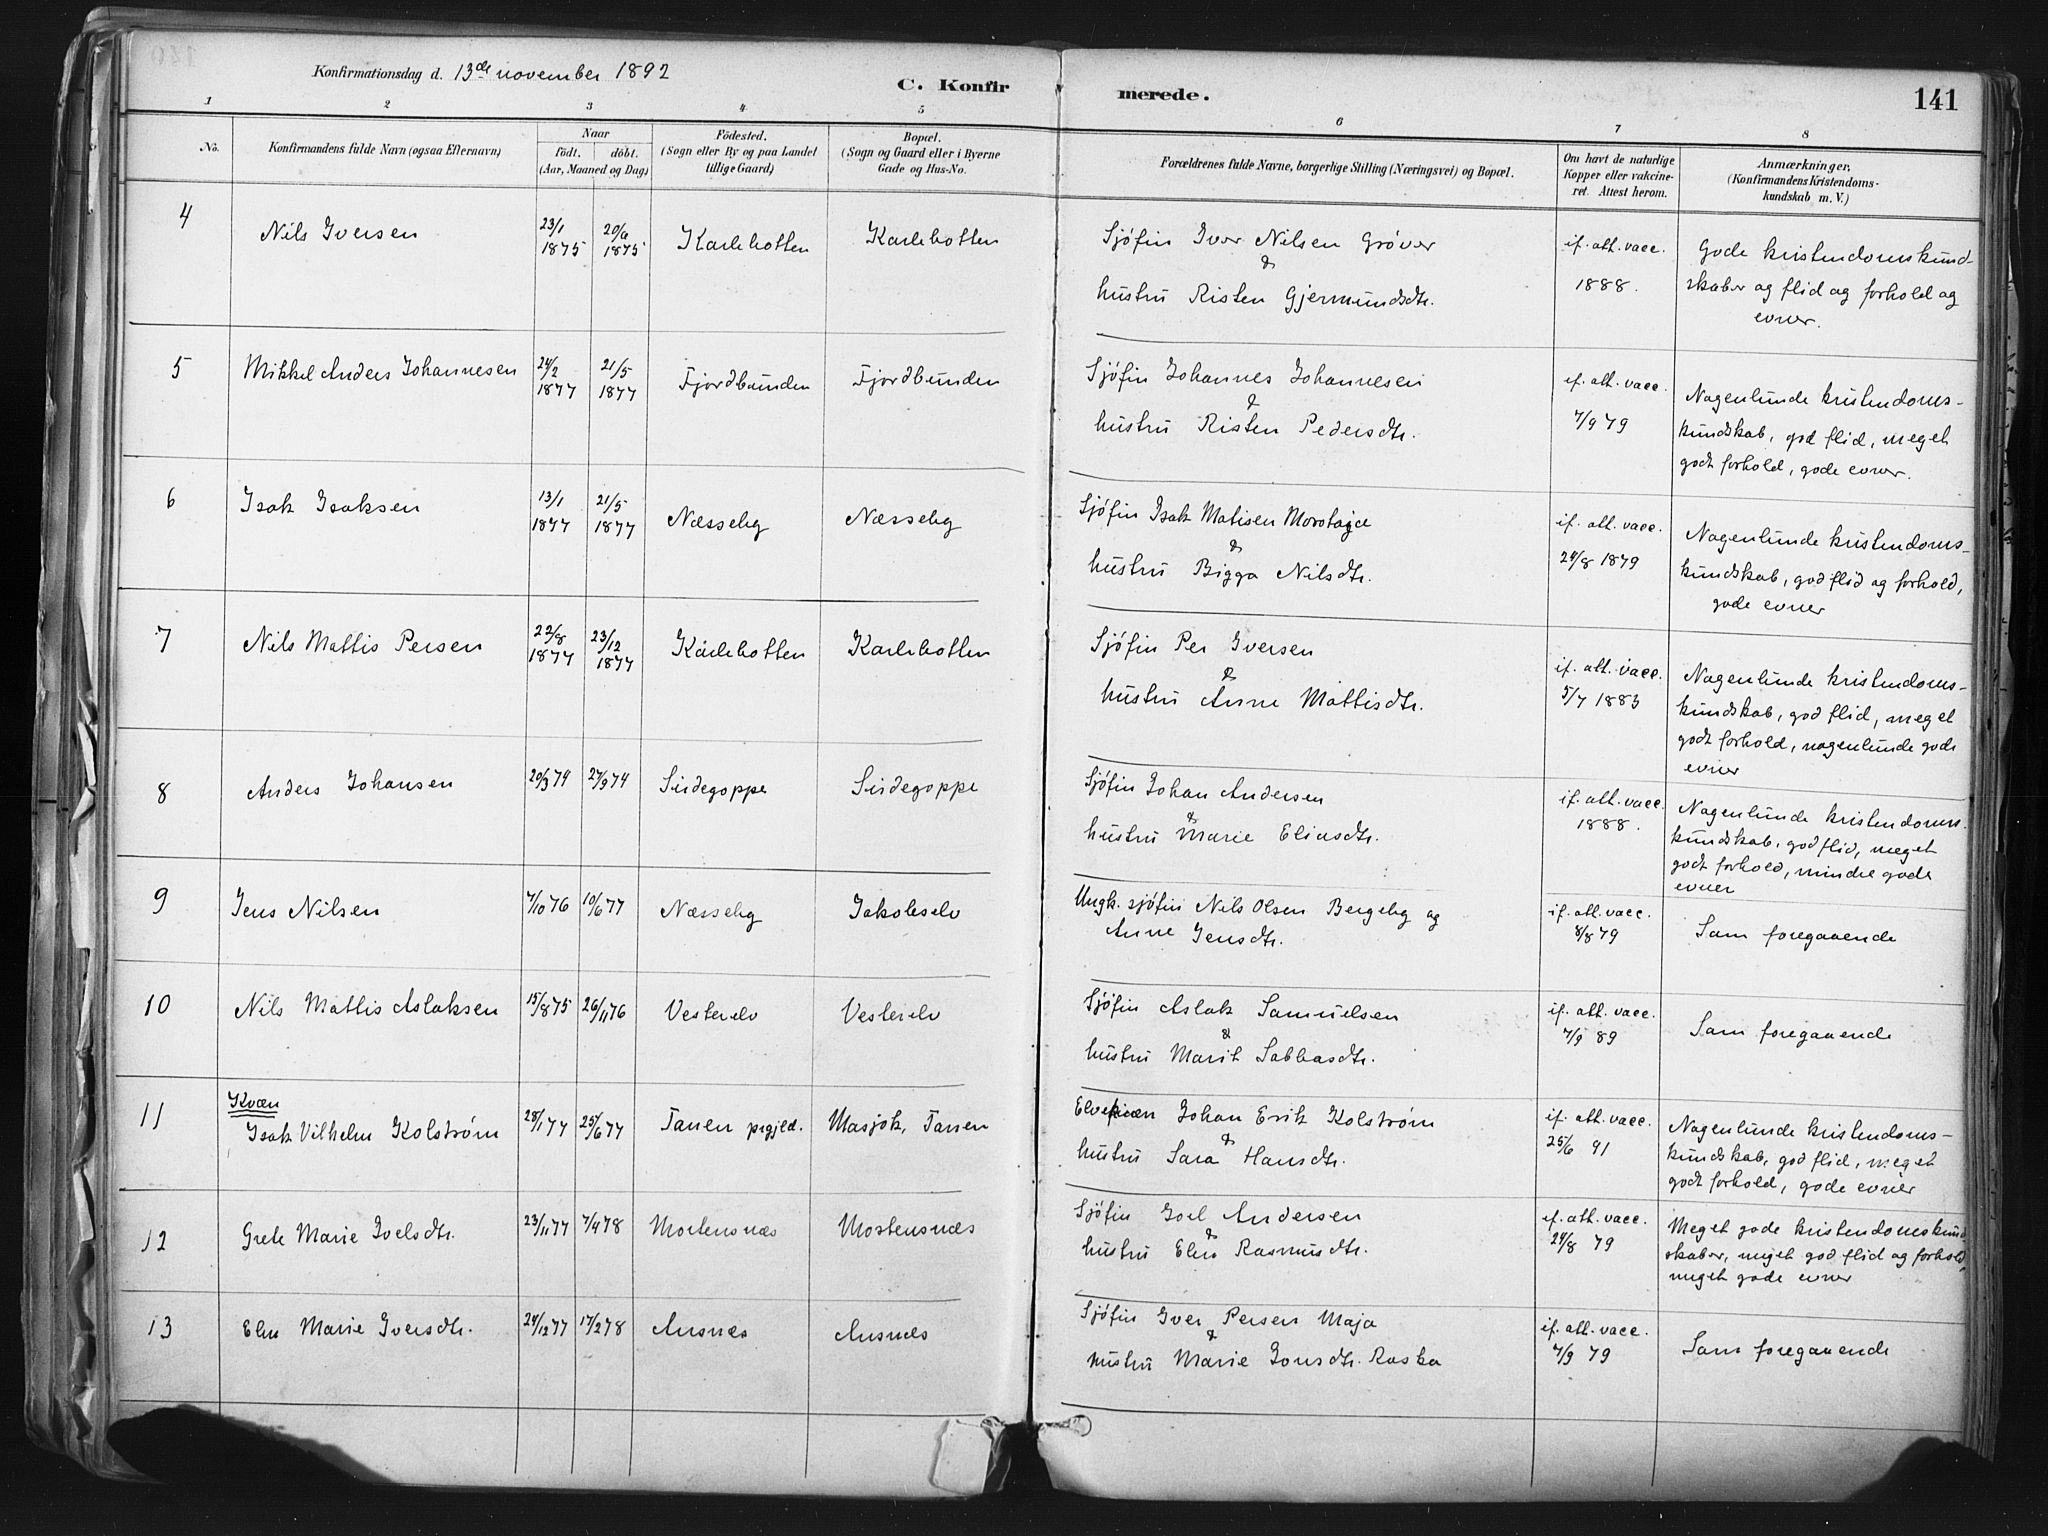 Konfirmationsdag d. 13de november 1892
C. Konfirmerede.
141
1 2 3 4 5 6 7 8
No.
Konfirmandens fulde Navn (ogsaa Efternavn)
Naar
födt. döbt.
(Aar, Maaned og Dag)
Födested.
(Sogn eller By og paa Landet
tillige Gaard)
Bopæl.
(Sogn og Gaard eller i Byerne
Gade og Hus-No.
Forældrenes fulde Navne, borgerlige Stilling (Næringsvei) og Bopæl.
Om havt de naturlige
Kopper eller vakcine-
ret. Attest herom.
Anmærkninger,
(Konfirmandens Kristendoms-
kundskab m. V.)
4 Nils Iversen 23/1 1875 20/6 1875 Karlebotten Karlebotten
Sjöfin Iver Nilsen Gröver
&
hustru Risten Gjermundsdtr.
if. att. vacc.
1888.
Gode kristendomskund-
skaber og flid og forhold og
evner.
5 Mikkel Anders Johannesen 24/2 1877 21/5 1877 Fjordbunden Fjordbunden
Sjöfin Johannes Johannesen
&
hustru Risten Pedersdtr.
if. att. vacc.
7/9 79
Nogenlunde kristendoms-
kundskab, god flid, meget
godt forhold, gode evner.
6 Isak Isaksen 13/1 1877 21/5 1877 Næsseby Næsseby
Sjöfin Isak Matisen
&
hustru Bigga Nilsdtr.
if. att. vacc.
24/8 1879
Nogenlunde kristendoms-
kundskab, god flid og forhold,
gode evner
7 Nils Mattis Persen 22/8 1877 23/12 1877 Karlebotten Karlebotten
Sjöfin Per Iversen
&
hustru Anne Mattisdtr.
if. att. vacc.
5/7 1883
Nogenlunde kristendoms-
kundskab, god flid, meget
godt forhold, nogenlunde gode
evner
8 Anders Johansen 20/3 74 27/9 74 Sirdegoppe Sirdegoppe
Sjöfin Johan Andersen
&
hustru Marie Eliasdtr.
if. att. vacc.
1888.
Nogenlunde kristendoms-
kundskab, god flid, meget
godt forhold, mindre gode
evner
9 Jens Nilsen 7/10 76 10/6 77 Næsseby Jakobselv
Ungk. sjöfin Nils Olsen Bergeby og
Anne Jensdtr.
if. att. vacc.
8/8 79
Som foregaaende
10 Nils Mattis Aslaksen 15/8 75 26/11 76 Vesterelv Vesterelv
Sjöfin Aslak Samuelsen
&
hustru Marit Sabbasdtr.
if. att. vacc.
7/9 89
Som foregaaende
Kvæn
11 Isak Vilhelm Kolström 28/1 77 25/6 77 Tanen prgjld. Masjok, Tanen
Elvekvæn Johan Erik Kolström
&
hustru Sara Hansdtr.
if. att. vacc.
25/6 91
Nogenlunde kristendoms-
kundskab, god flid, meget
godt forhold, gode evner
12 Grete Marie Joelsdtr. 23/11 77 7/4 78 Mortensnæs Mortensnæs
Sjöfin Joel Andersen
&
hustru Elen Rasmusdtr.
if. att. vacc.
24/8 79
Meget gode kristendomskund-
skaber, meget god flid og forhold,
meget gode evner
13 Elen Marie Iversdtr. 24/12 77 17/2 78 Ansnæs Ansnæs
Sjöfin Iver Persen Maja
&
hustru Marie Jonsdtr. Raska
if. att. vacc.
7/9 79
Som foregaaende